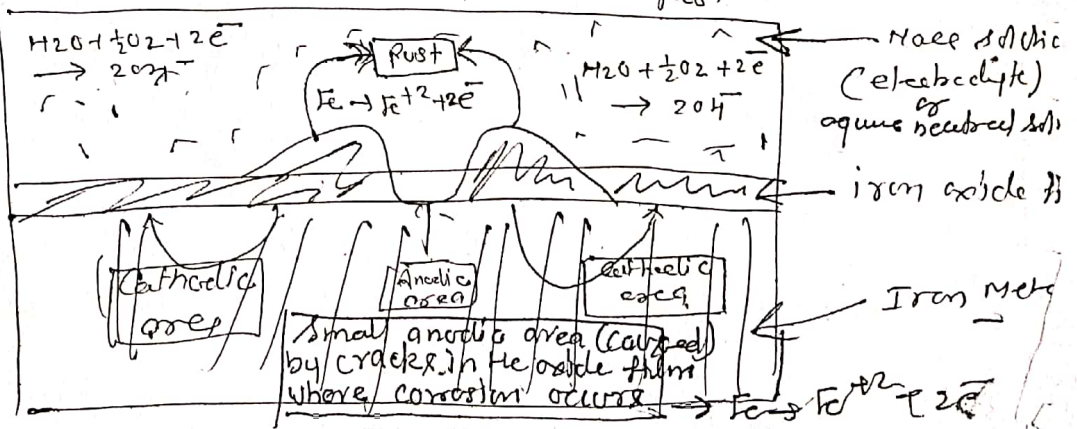 H2O + ½O2 + 2e⁻
→ 2OH⁻
Rust
Fe → Fe⁺² + 2e⁻
H2O + ½O2 + 2e⁻
→ 2OH⁻
(electrolyte)
or
iron oxide
Cathodic
area
Anodic
area
Cathodic
area
Iron Met
Small anodic area (caused)
by cracks in the oxide film
where corrosion occurs → Fe → Fe⁺² + 2e⁻